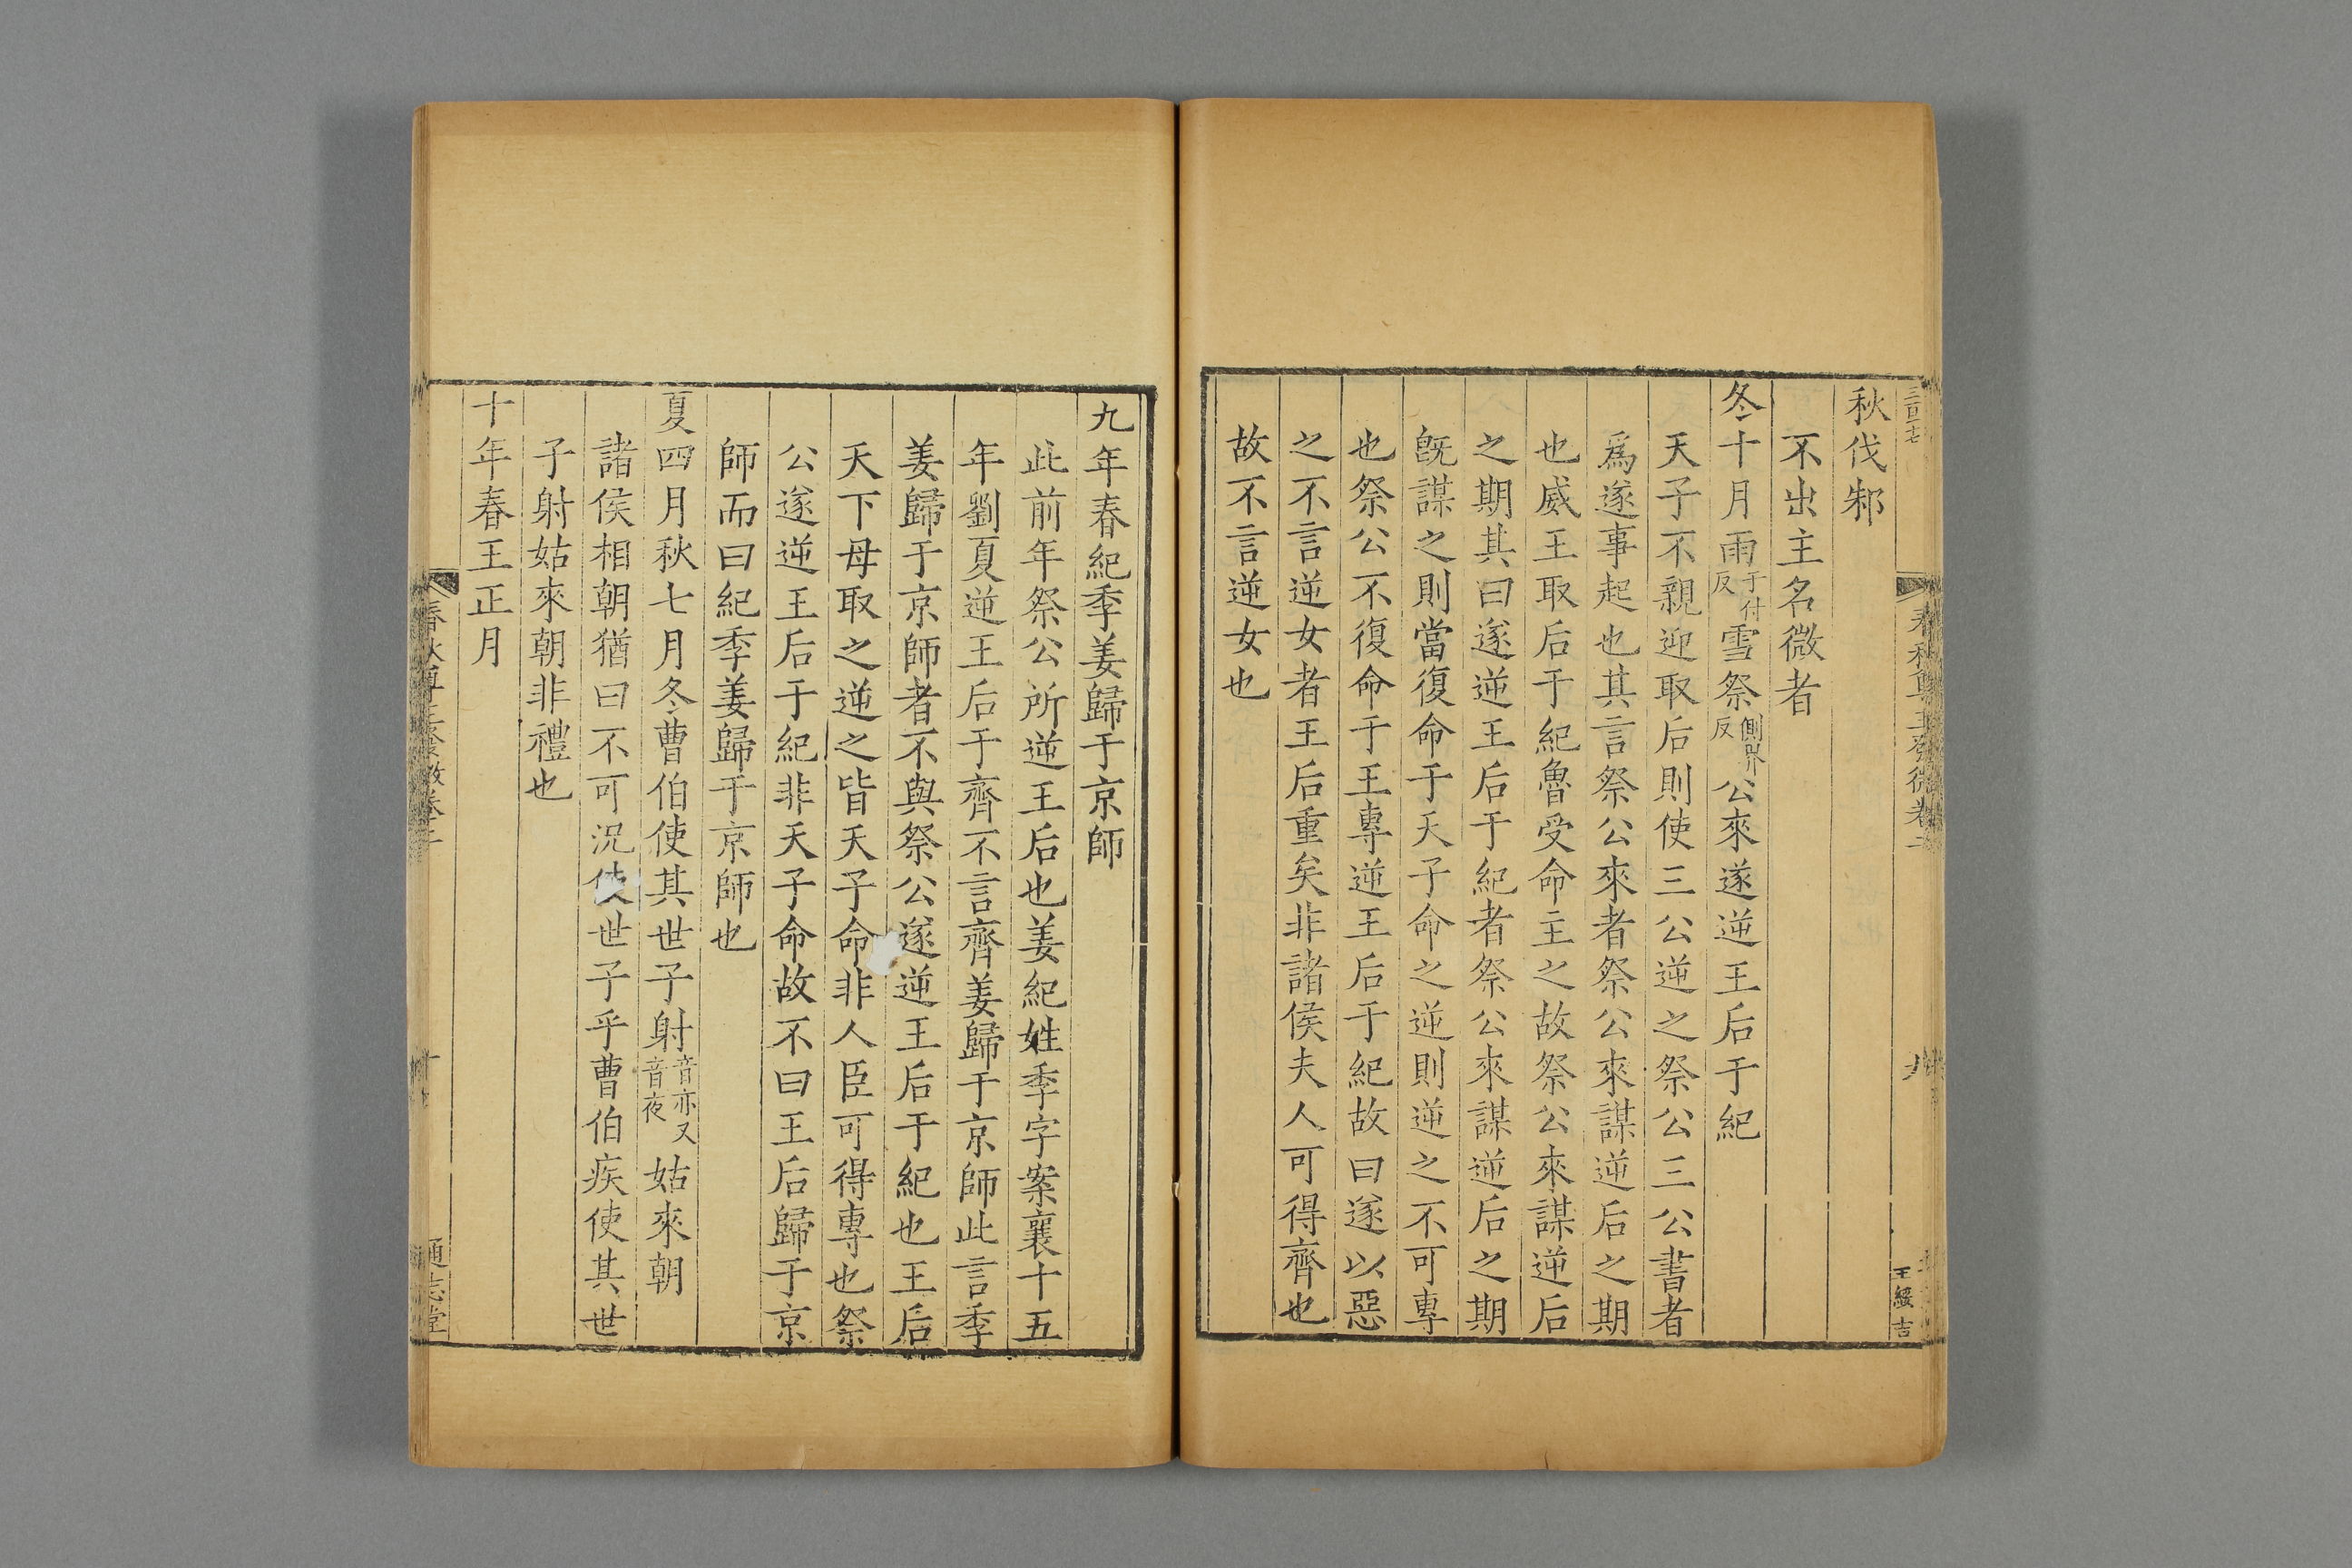 秋伐邾
不出主名微者
冬十月雨于付反雪祭側界反公來遂逆王后于紀
天子不親迎取后則使三公逆之祭公三公書者
爲遂事起也其言祭公來者祭公來謀逆后之期
也威王取后于紀魯受命主之故祭公來謀逆后
之期其曰遂逆王后于紀者祭公來謀逆后之期
旣謀之則當復命于天子命之逆則逆之不可專
也祭公不復命于王專逆王后于紀故曰遂以惡
之不言逆女者王后重矣非諸侯夫人可得齊也
故不言逆女也
春秋尊王發微卷二
九
王綬吉
九年春紀季姜歸于京師
此前年祭公所逆王后也姜紀姓季字案襄十五
年劉夏逆王后于齊不言齊姜歸于京師此言季
姜歸于京師者不與祭公遂逆王后于紀也王后
天下母取之逆之皆天子命非人臣可得專也祭
公遂逆王后于紀非天子命故不曰王后歸于京
師而曰紀季姜歸于京師也
夏四月秋七月冬曹伯使其世子射音亦又音夜姑來朝
諸侯相朝猶曰不可況使世子乎曹伯疾使其世
子射姑來朝非禮也
十年春王正月
春秋尊王發微卷二
十
通志堂